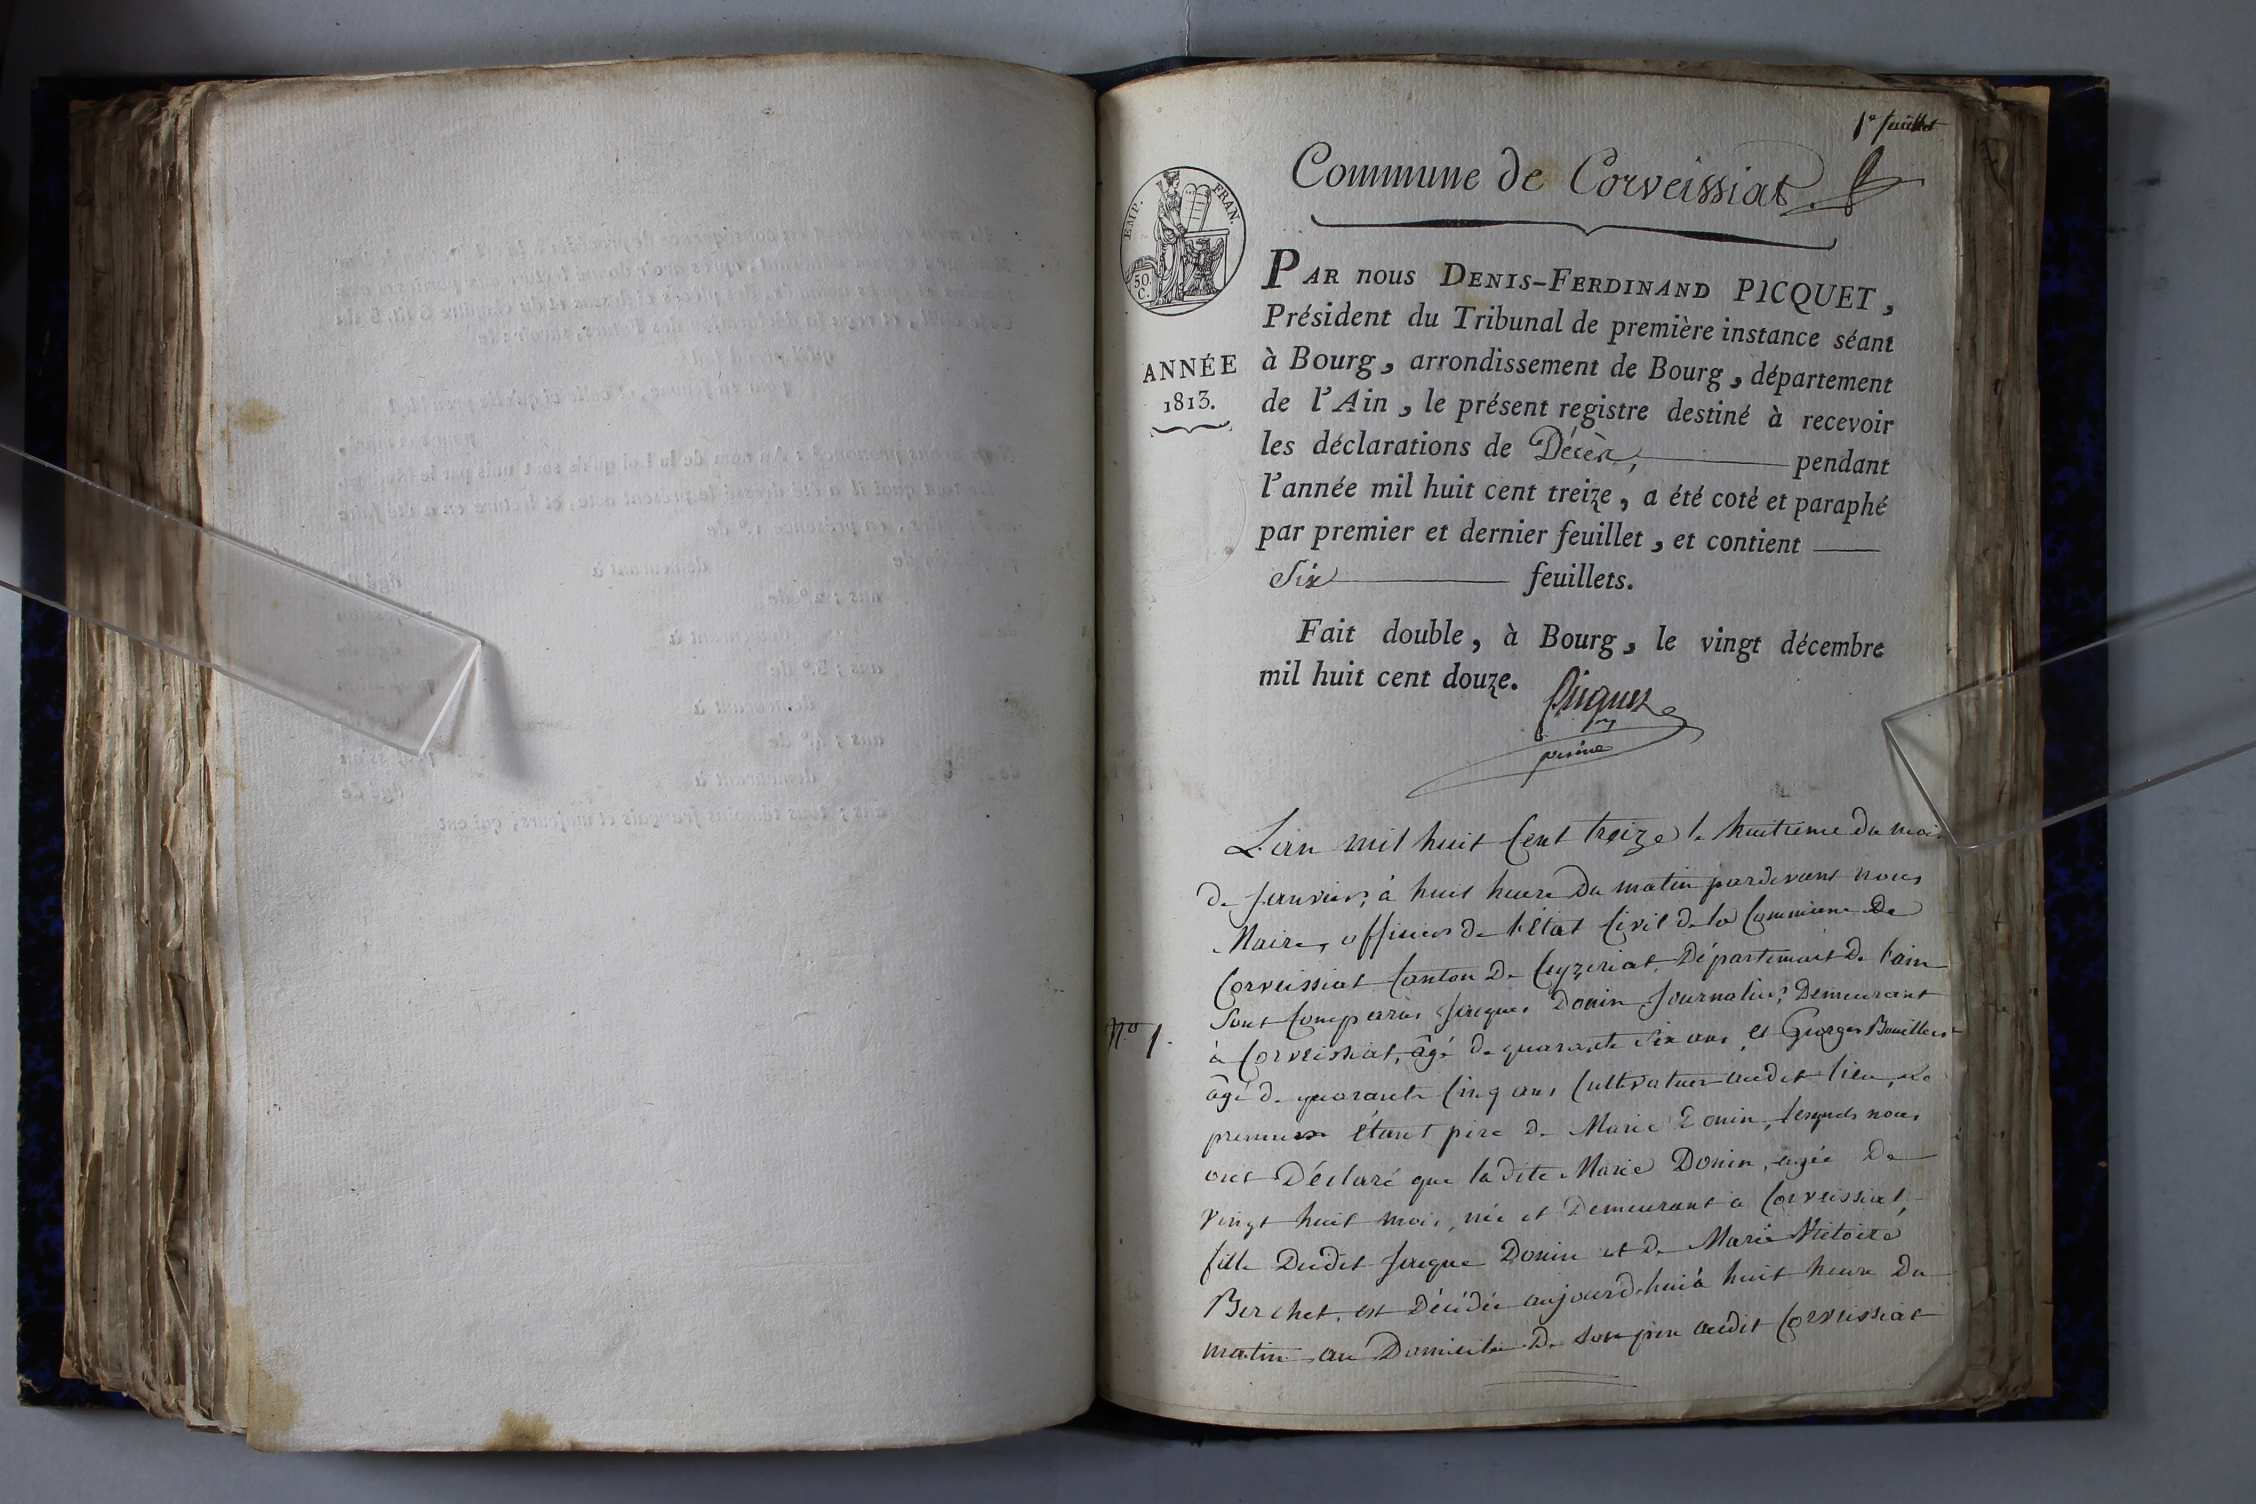 1er feuillet
Commune de Corveissiat
EMP. FRAN.
50 C.
ANNÉE
1813.
PAR nous DENIS-FERDINAND PICQUET,
Président du Tribunal de première instance séant
à Bourg, arrondissement de Bourg, département
de l'Ain, le présent registre destiné à recevoir
les déclarations de Décès, pendant
l'année mil huit cent treize, a été coté et paraphé
par premier et dernier feuillet, et contient
Six feuillets.
Fait double, à Bourg, le vingt décembre
mil huit cent douze.
Picquet
L'an mil huit Cent treize le huitieme du mois
de Janvier, à huit heure du matin pardevant nous
Maire, officier de l'état Civil de la Commune de
Corveissiat Canton de Ceyzeriat, Département de l'ain
Sont Comparus Jacques Donin Journalier, Demeurant
N.º 1.
à Corveissiat, âgé de quarante Six ans, et Georges Bouilleret
âgé de quarante Cinq ans Cultivateur audit lieu, le
premier étant père de Marie Donin, lesquels nous
ont Déclaré que ladite Marie Donin, agée de
vingt huit mois, née et Demeurant à Corveissiat,
fille Dudit Jacque Donin et de Marie Victoire
Berchet, est Décédée aujourd'hui à huit heure du
matin au Domicile de son père audit Corveissiat